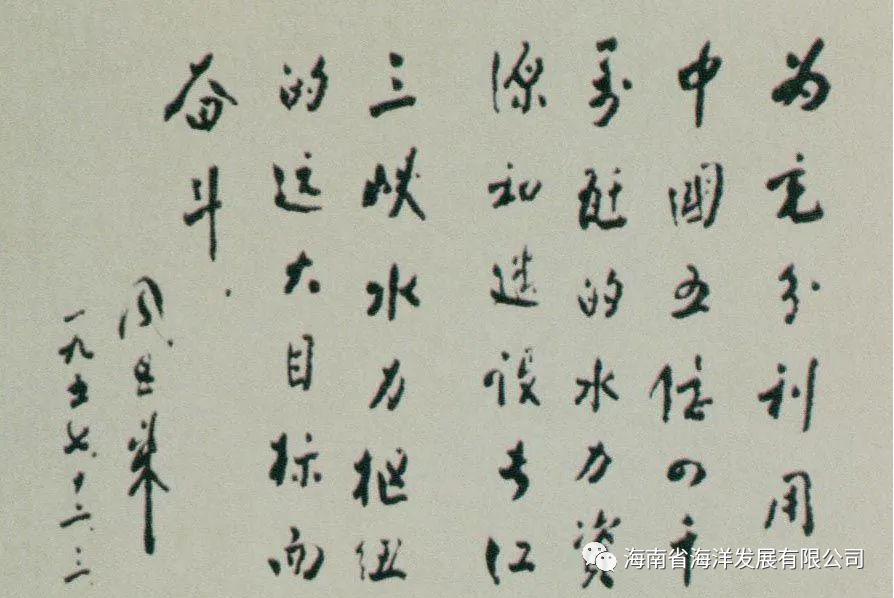 为充分利用
中國五億四千
萬瓩的水力资
源和建设长江
三峡水力枢纽
的远大目标而
奋斗.
周恩来
一九五七、十二、三
海南省海洋发展有限公司